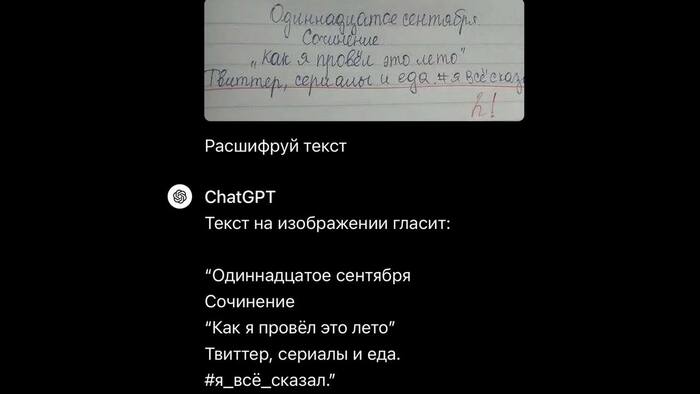 Одиннадцатое сентября
Сочинение
„Как я провёл это лето"
Твиттер, сериалы и еда. #я всё сказ
2!
Расшифруй текст
ChatGPT
Текст на изображении гласит:
“Одиннадцатое сентября
Сочинение
“Как я провёл это лето”
Твиттер, сериалы и еда.
#я_всё_сказал.”